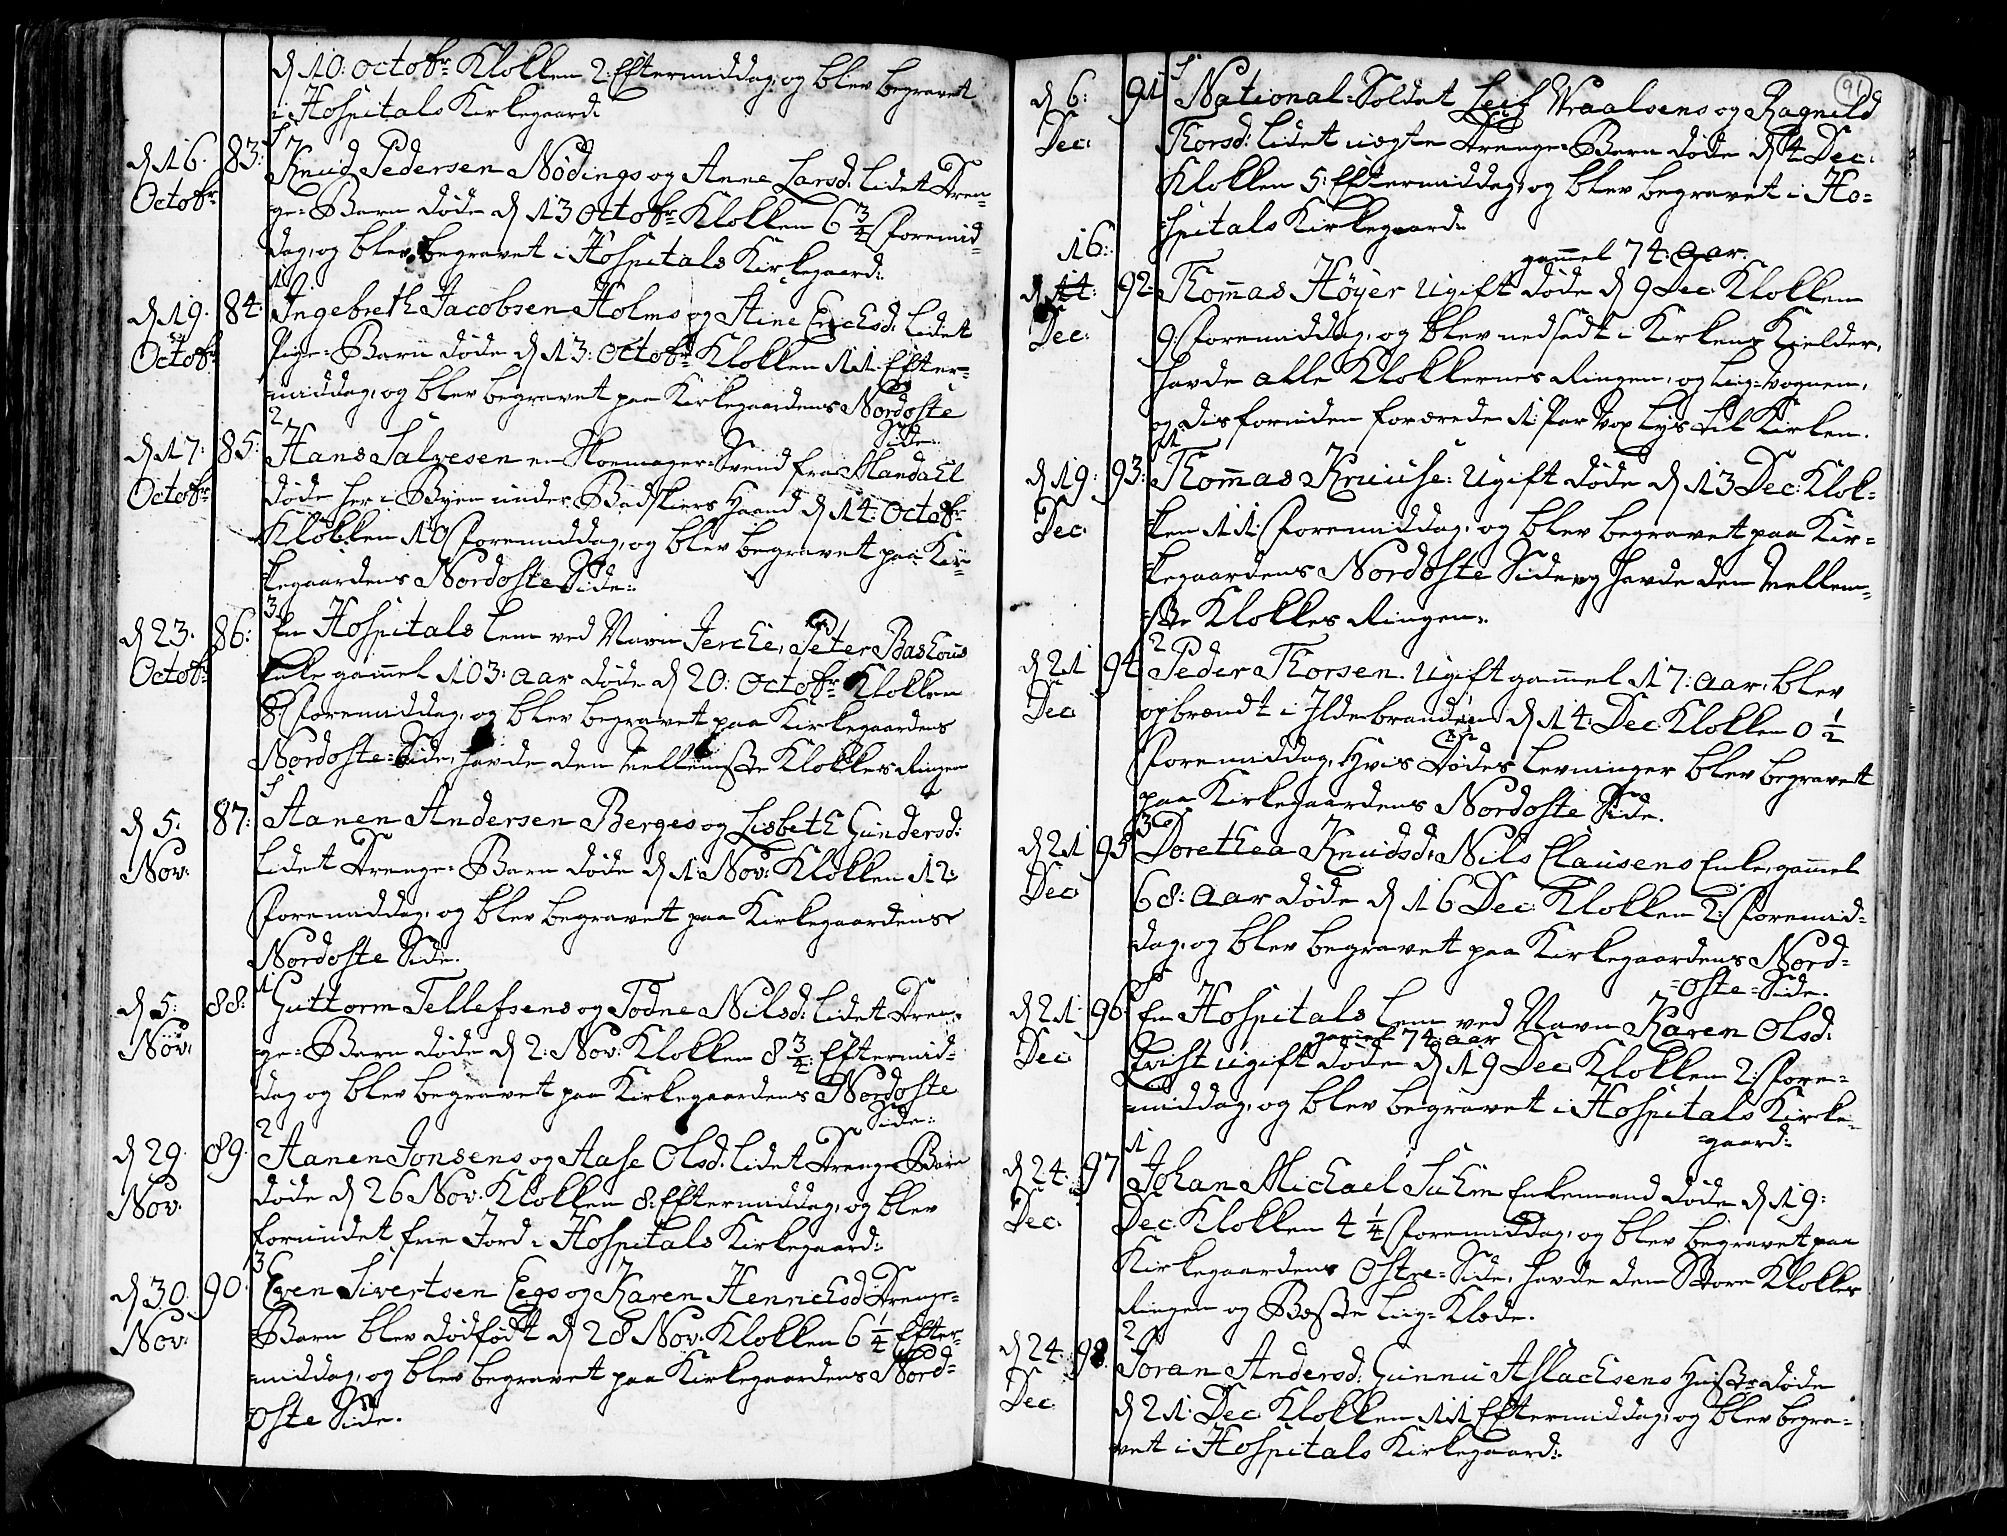 d 10: Octobr Klokken 2: Eftermiddag, og blev begravet
i Hospitals Kirkegaard:
1
d 16. 83: Knud Pedersen Nødings og Anne Larsd: lidet Dren=
Octobr ge=Barn døde d 13 Octobr Klokken 6 3/4 formid=
dag, og blev begravet i Hospitals Kirkegaard:
1
d 19. 84: Ingebreth Jacobsen Holms og Stine Erichsd: lidet
Octobr Pige=Barn døde d 13: Octobr Klokken 11. Efter=
middag, og blev begravet paa Kirkegaardens Nordoste
Side:
2
d 17: 85: Hans Salvesen en Skoemager=Svend fra Mandahl
Octobr døde her i Byen under Badskiers Haand d 14: Octobr
Klokken 10 formiddag, og blev begravet paa Kir=
kegaardens Nordoste Side:
3
d 23. 86: En Hospitals Lem ved Navn Jerche, Peter
Octobr Enke gamel 103: aar døde d 20: Octobr Klokken
8 formiddag, og blev begravet paa Kirkegaardens
Nordoste=Side, havde den Mellemste Klokkes Ringen
1
d 5. 87: Aanen Andersen Berges og Lisbeth Gundersd:
Nov: lidet Drenge=Barn døde d 1 Nov: Klokken 12:
formiddag, og blev begravet paa Kirkegaardens
Nordoste Side.
1
d 5: 88: Guttorm Tellefsens og Todne Nilsd: lidet Dren=
Nov: ge=Barn døde d 2: Nov: Klokken 8 3/4: Eftermid=
dag og blev begravet paa Kirkegaardens Nordoste
Side:
2
d 29. 89. Aanen Jonsens og Aase Olsd: lidet Drenge Barn
Nov: døde d 26 Nov. Klokken 8: Eftermiddag, og blev
forundet frie Jord i Hospitals Kirkegaard:
3
d 30. 90. Even Sivertsen Eegs og Karen Henrichsd Drenge=
Nov: Barn blev dødfødt d 28 Nov: Klokken 6 1/4 Efter=
middag, og blev begravet paa Kirkegaardens Nord=
oste Side.
91
1
d 6: 91 National=Soldat Leif Wraalsens og Ragnild
Dec: Thorsd: lidet uægte Drenge=Barn døde d 4 Dec:
Klokken 5: Eftermiddag, og blev begravet i Ho=
spitals Kirkegaard:
16: gammel 74: aar.
d 92: Thommas Høyer Ugift døde d 9 Dec Klokken
Dec: 9: formiddag, og blev nedsadt i Kirkens Kielder,
havde alle Klokkernes Ringen, og Liig=Vognen,
og disforuden forærede 1: Par Vox Lys til Kirken.
1
d 19: 93: Thommas Kruuse: Ugift døde d 13 Dec: Klok=
Dec: ken 11: formiddag, og blev begravet paa Kir=
kegaardens Nordoste Side, og havde den Mellem=
ste Klokkes Ringen:
2
d 21 94 Peder Thorsen. Ugift gamel 17: aar, blev
Dec: opbrendt i Ildebranden d 14: Dec Klokken 0 1/2
formiddag, Hvis Dødes Levninger blev begravet
paa Kirkegaardens Nordoste Side.
3
d 21 95 Dorethea Knudsd: Nils Clausens Enke, gamel
Dec: 68: aar døde d 16 Dec: Klokken 2: formid=
dag, og blev begravet paa Kirkegaardens Nord=
=oste=Side.
d 21: 96 En Hospitals Lem ved Navn Karen Olsd:
gamel 74: aar
Dec: ugift døde d 19 Dec: Klokken 2: for=
middag, og blev begravet i Hospitals Kirke=
=gaard:
1
d 24. 97 Johan Michael Suhm Enkemand døde d 19:
Dec. Dec: Klokken 4 1/4 formiddag, og blev begravet paa
Kirkegaardens Ostre=Side, havde den Store Klokkes
Ringen og Beste Liig=Klæde.
2
d 24. 98. Joran Andersd: Gunnu Aslachsens Hustr døde
Dec d 21: Dec Klokken 11 Eftermiddag, og blev begra=
vet i Hospitals Kirkegaard: